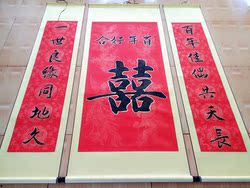 百年佳偶共天長
百年好合
囍
一世良緣同地久